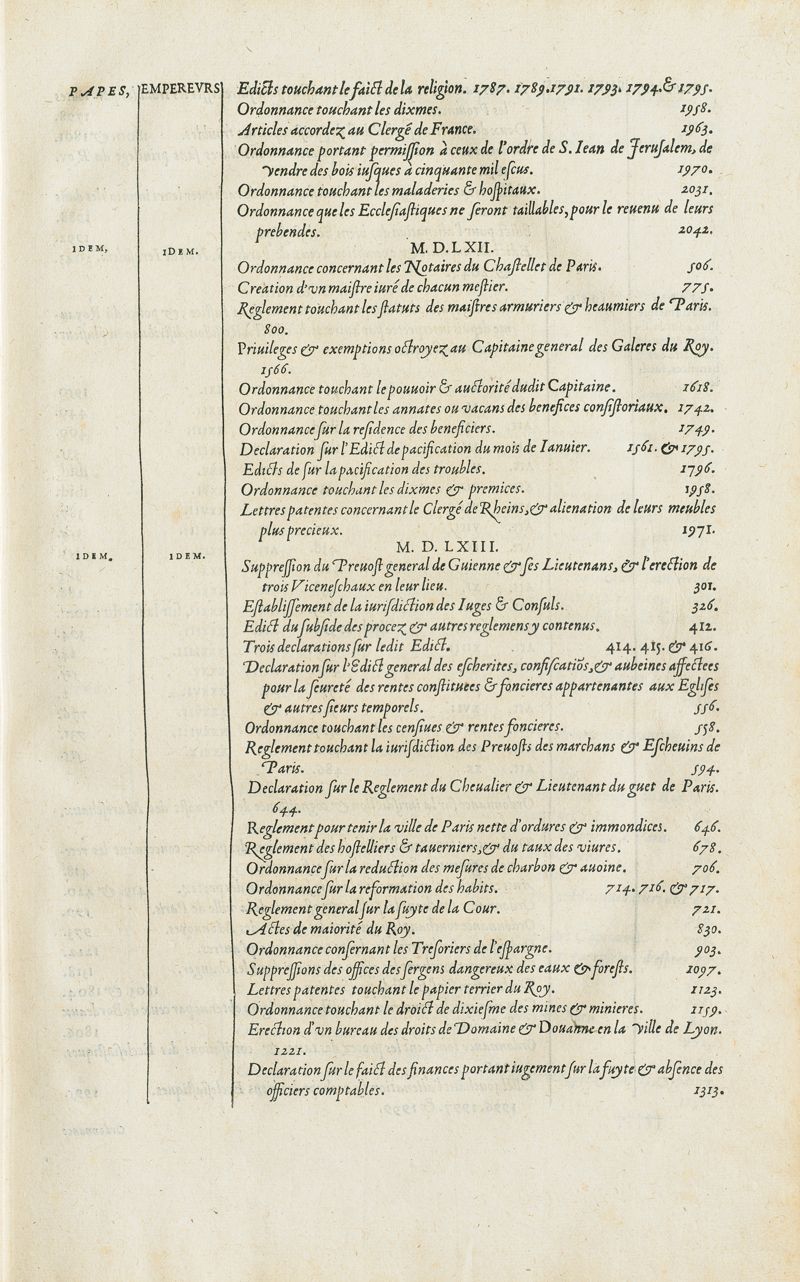 PAPES, EMPEREVRS Edicts touchant le faict de la religion. 1787. 1789. 1791. 1793. 1794. & 1795.
Ordonnance touchant les dixmes. 1958.
Articles accordez au Clergé de France. 1963.
Ordonnance portant permiſſion à ceux de l'ordre de S. Iean de Ieruſalem, de
vendre des bois iuſques à cinquante mil eſcus. 1970.
Ordonnance touchant les maladeries & hoſpitaux. 2031.
Ordonnance que les Eccleſiaſtiques ne ſeront taillables, pour le reuenu de leurs
prebendes. 2042.
IDEM, IDEM. M. D. LXII.
Ordonnance concernant les Notaires du Chaſtellet de Paris. 506.
Creation d'vn maiſtre iuré de chacun meſtier. 775.
Reglement touchant les ſtatuts des maiſtres armuriers & heaumiers de Paris.
800.
Priuileges & exemptions octroyez au Capitaine general des Galeres du Roy.
1566.
Ordonnance touchant le pouuoir & auctorité dudit Capitaine. 1618.
Ordonnance touchant les annates ou vacans des benefices conſiſtoriaux. 1742.
Ordonnance ſur la reſidence des beneficiers. 1749.
Declaration ſur l'Edict de pacification du mois de Ianuier. 1561. & 1795.
Edicts de ſur la pacification des troubles. 1796.
Ordonnance touchant les dixmes & premices. 1958.
Lettres patentes concernant le Clergé de Rheins, & alienation de leurs meubles
plus precieux. 1971.
IDEM. IDEM. M. D. LXIII.
Suppreſſion du Preuoſt general de Guienne & ſes Lieutenans, & l'erection de
trois Viceneſchaux en leur lieu. 301.
Eſtabliſſement de la iuriſdiction des Iuges & Conſuls. 326.
Edict du ſubſide des procez & autres reglemens y contenus. 412.
Trois declarations ſur ledit Edict. 414. 415. & 416.
Declaration ſur l'Edict general des eſcherites, confiſcatiōs, & aubeines affectees
pour la ſeureté des rentes conſtituees & foncieres appartenantes aux Egliſes
& autres ſieurs temporels. 556.
Ordonnance touchant les cenſiues & rentes foncieres. 558.
Reglement touchant la iuriſdiction des Preuoſts des marchans & Eſcheuins de
Paris. 594.
Declaration ſur le Reglement du Cheualier & Lieutenant du guet de Paris.
644.
Reglement pour tenir la ville de Paris nette d'ordures & immondices. 646.
Reglement des hoſtelliers & tauerniers, & du taux des viures. 678.
Ordonnance ſur la reduction des meſures de charbon & auoine. 706.
Ordonnance ſur la reformation des habits. 714. 716. & 717.
Reglement general ſur la ſuyte de la Cour. 721.
Actes de maiorité du Roy. 830.
Ordonnance conſernant les Treſoriers de l'eſpargne. 903.
Suppreſſions des offices des ſergens dangereux des eaux & foreſts. 1097.
Lettres patentes touchant le papier terrier du Roy. 1123.
Ordonnance touchant le droict de dixieſme des mines & minieres. 1159.
Erection d'vn bureau des droits de Domaine & Douanne en la ville de Lyon.
1221.
Declaration ſur le faict des finances portant iugement ſur la fuyte & abſence des
officiers comptables. 1313.